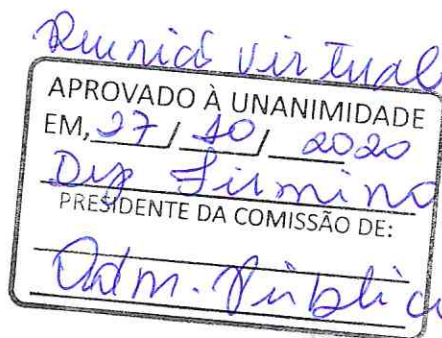 Reunião virtual
APROVADO À UNANIMIDADE
EM, 27 / 10 / 2020
Dep Firmino
PRESIDENTE DA COMISSÃO DE:
Adm. Pública